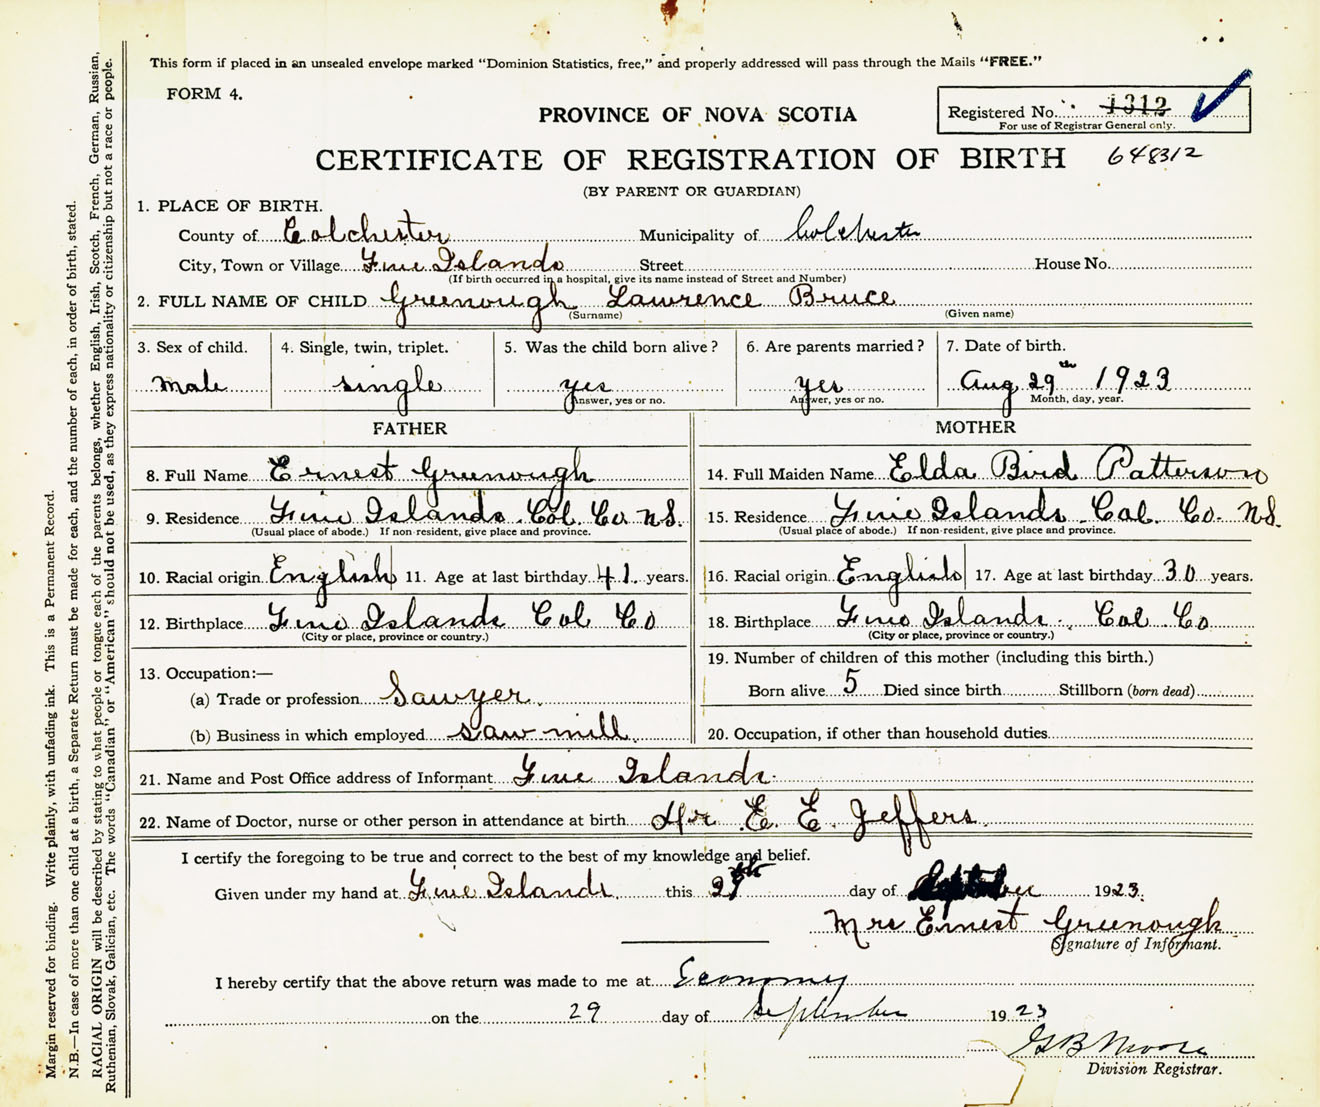 This form if placed in an unsealed envelope marked "Dominion Statistics, free," and properly addressed will pass through the Mails "FREE."
FORM 4.
Registered No. 1312
For use of Registrar General only.
PROVINCE OF NOVA SCOTIA
CERTIFICATE OF REGISTRATION OF BIRTH 648312
(BY PARENT OR GUARDIAN)
1. PLACE OF BIRTH.
County of Colchester Municipality of Colchester
City, Town or Village Five Islands Street House No.
(If birth occurred in a hospital, give its name instead of Street and Number)
2. FULL NAME OF CHILD Greenough Lawrence Bruce
(Surname) (Given name)
3. Sex of child. 4. Single, twin, triplet. 5. Was the child born alive? 6. Are parents married? 7. Date of birth.
male single yes yes Aug 29th 1923
Answer, yes or no. Answer, yes or no. Month, day, year.
FATHER MOTHER
8. Full Name Ernest Greenough 14. Full Maiden Name Elda Bird Patterson
9. Residence Five Islands Col. Co N.S. 15. Residence Five Islands Col. Co. N.S.
(Usual place of abode.) If non-resident, give place and province. (Usual place of abode.) If non-resident, give place and province.
10. Racial origin English 11. Age at last birthday 41 years. 16. Racial origin English 17. Age at last birthday 30 years.
12. Birthplace Five Islands Col Co 18. Birthplace Five Islands Col. Co
(City or place, province or country.) (City or place, province or country.)
13. Occupation:— 19. Number of children of this mother (including this birth.)
(a) Trade or profession Sawyer Born alive 5 Died since birth Stillborn (born dead)
(b) Business in which employed saw mill 20. Occupation, if other than household duties
21. Name and Post Office address of Informant Five Islands
22. Name of Doctor, nurse or other person in attendance at birth Dr E. E. Jeffers
I certify the foregoing to be true and correct to the best of my knowledge and belief.
Given under my hand at Five Islands this 29th day of September 1923
Mrs Ernest Greenough
Signature of Informant.
I hereby certify that the above return was made to me at Economy
on the 29 day of September 1923
G B Moore
Division Registrar.
Margin reserved for binding. Write plainly, with unfading ink. This is a Permanent Record.
N.B.—In case of more than one child at a birth, a Separate Return must be made for each, and the number of each, in order of birth, stated.
RACIAL ORIGIN will be described by stating to what people or tongue each of the parents belongs, whether English, Irish, Scotch, French, German, Russian,
Ruthenian, Slovak, Galician, etc. The words "Canadian" or "American" should not be used, as they express nationality or citizenship but not a race or people.